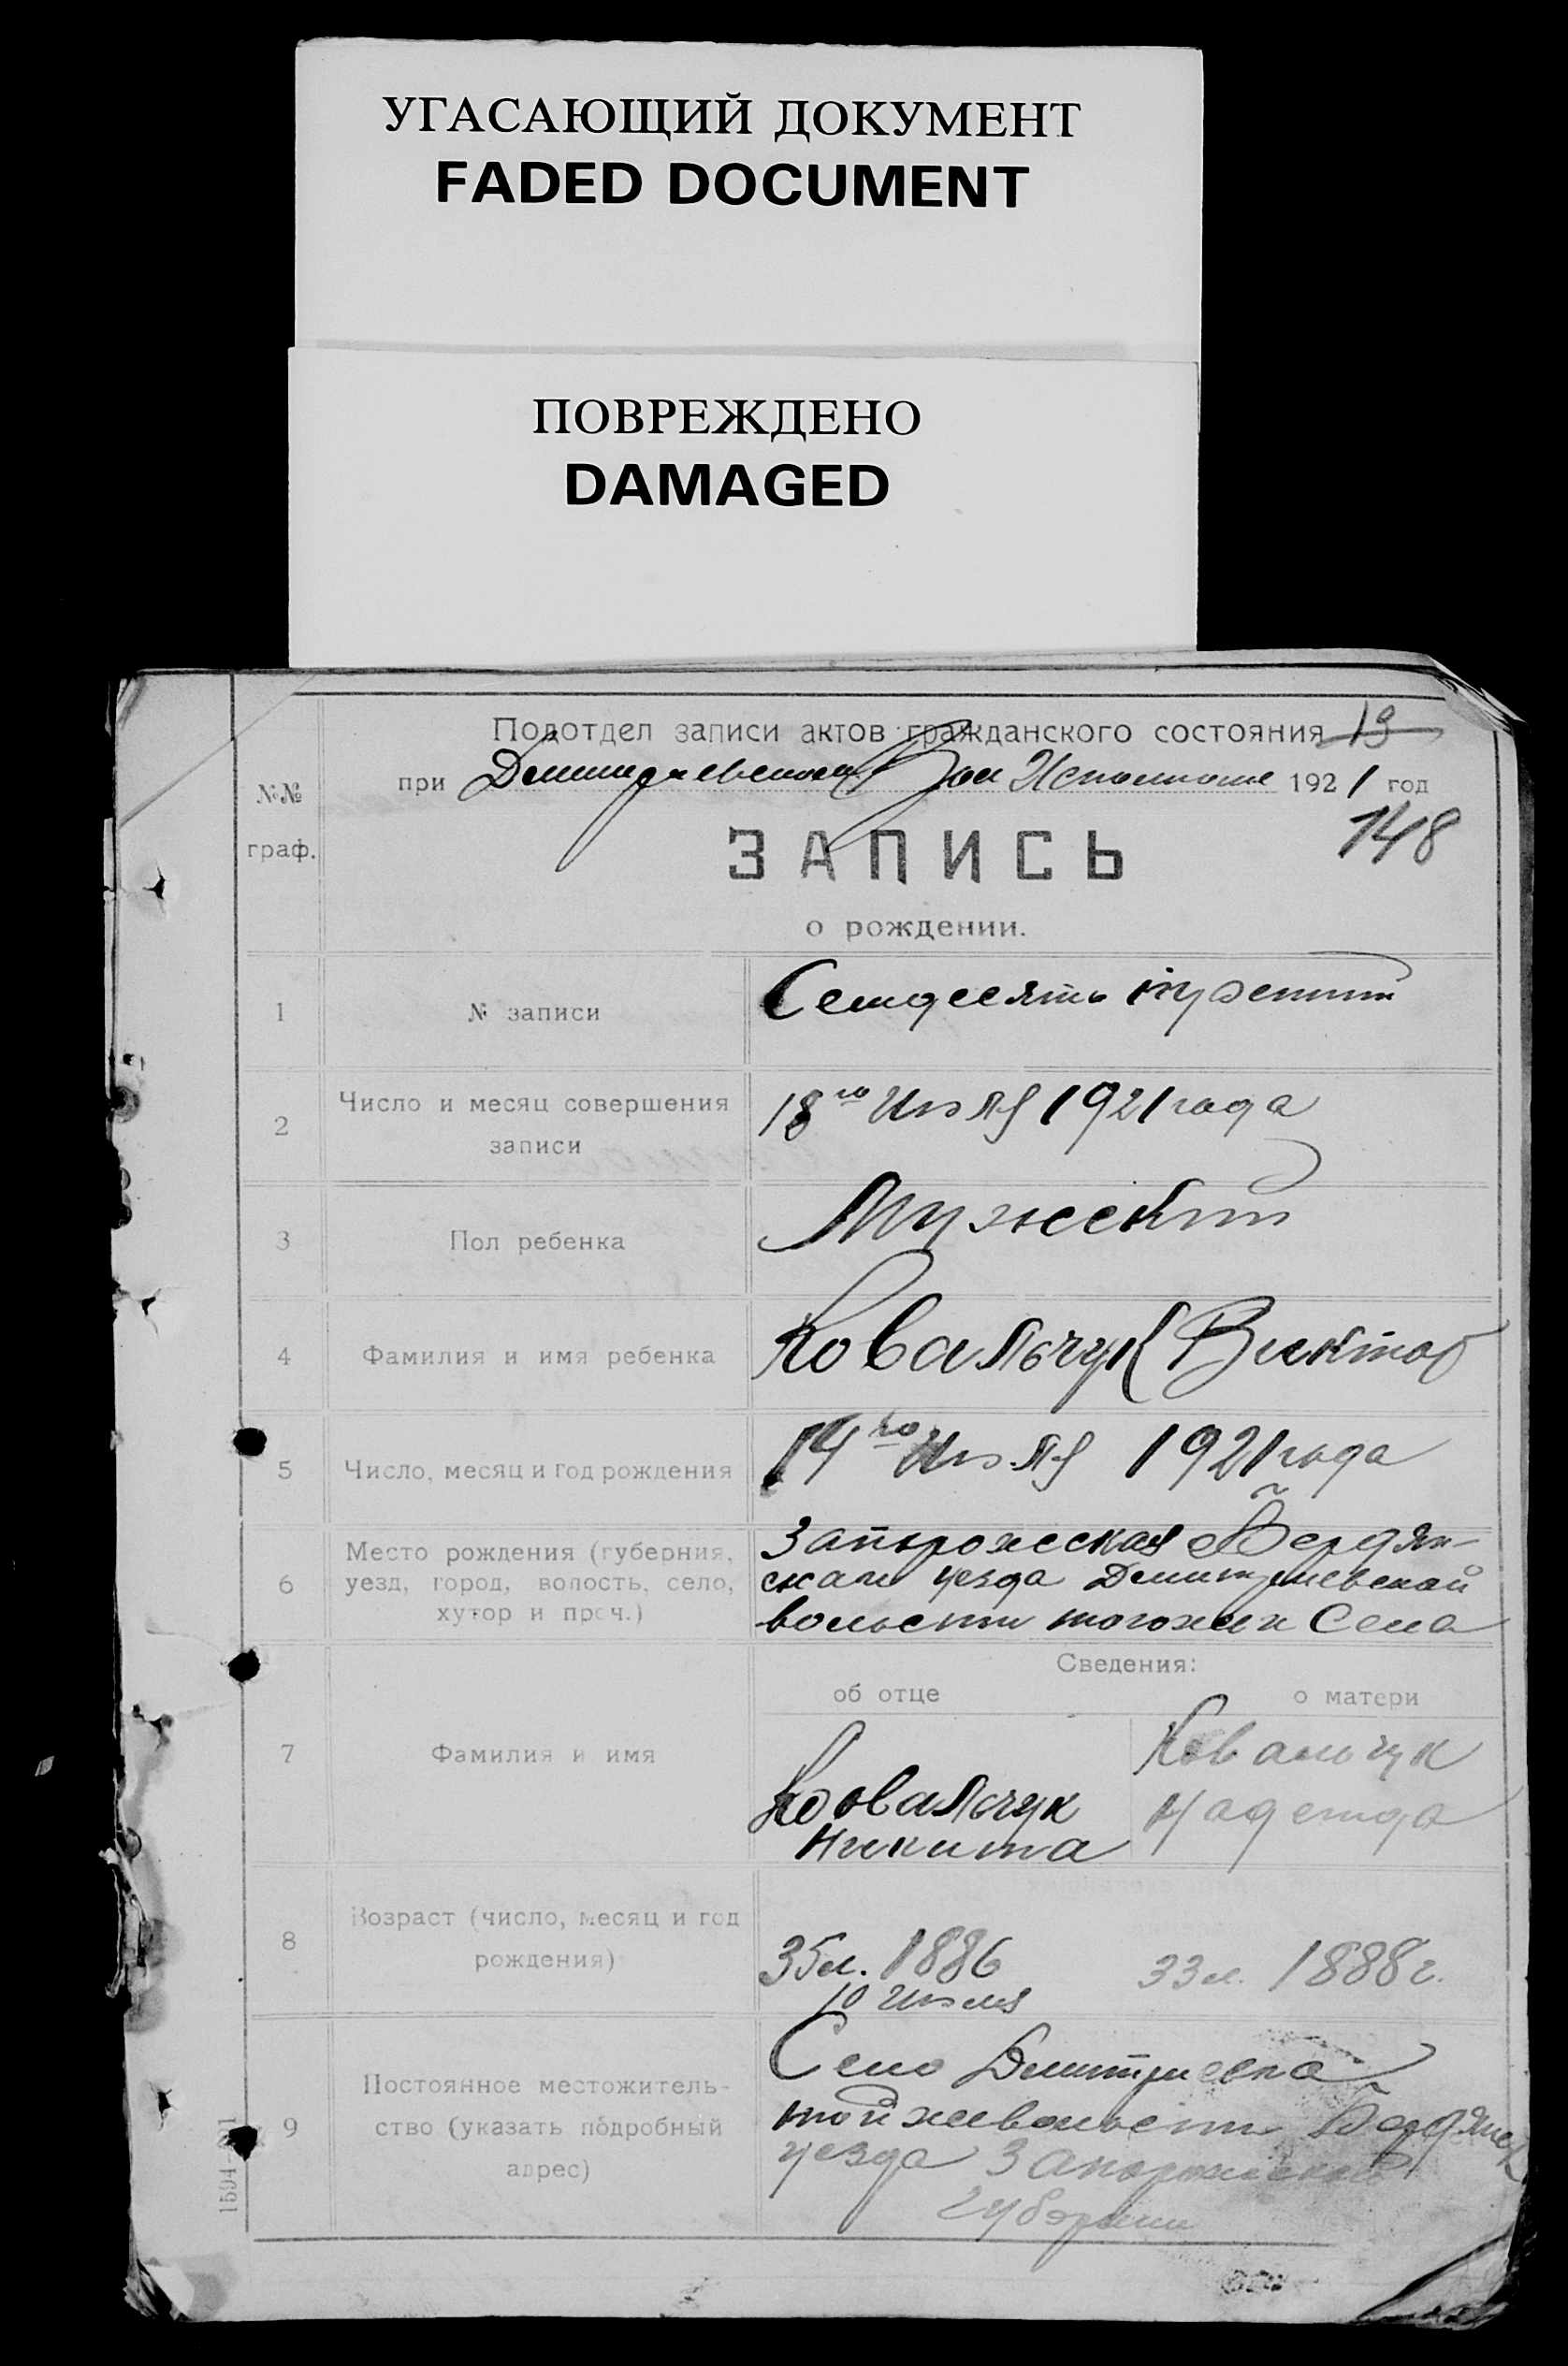 УГАСАЮЩИЙ ДОКУМЕНТ
FADED DOCUMENT
ПОВРЕЖДЕНО
DAMAGED
Подотдел записи актов гражданского состояния 19
№№ граф.
при 1921 год
148
ЗАПИСЬ
о рождении.
1 № записи
Семдесять
2 Число и месяц совершения
записи
18го Июля 1921 года
3 Пол ребенка
Мужской
4 Фамилия и имя ребенка
Ковальчук Виктор
5 Число, месяц и год рождения
14го Июля 1921 года
6 Место рождения (губерния,
уезд, город, волость, село,
хутор и проч.)
Запорожская Бердян-
скаго уезда Дмитриевской
волости тогоже Села
Сведения:
об отце
о матери
7 Фамилия и имя
Ковальчук
Никита
Ковальчук
Надежда
8 Возраст (число, месяц и год
рождения)
35 л. 1886
10 Июля
33 л. 1888 г.
9 Постоянное местожитель-
ство (указать подробный
адрес)
Село Дмитриевка
тойже волости Бердянск
уезда Запорожской
губернии